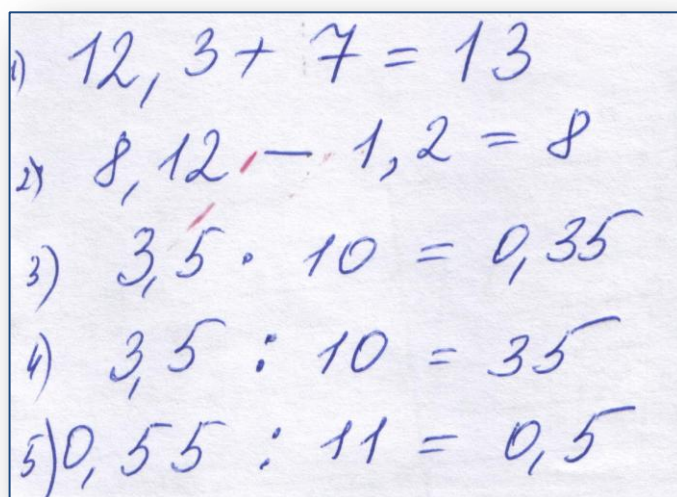 1) 12,3 + 7 = 13
2) 8,12 – 1,2 = 8
3) 3,5 · 10 = 0,35
4) 3,5 : 10 = 35
5) 0,55 : 11 = 0,5